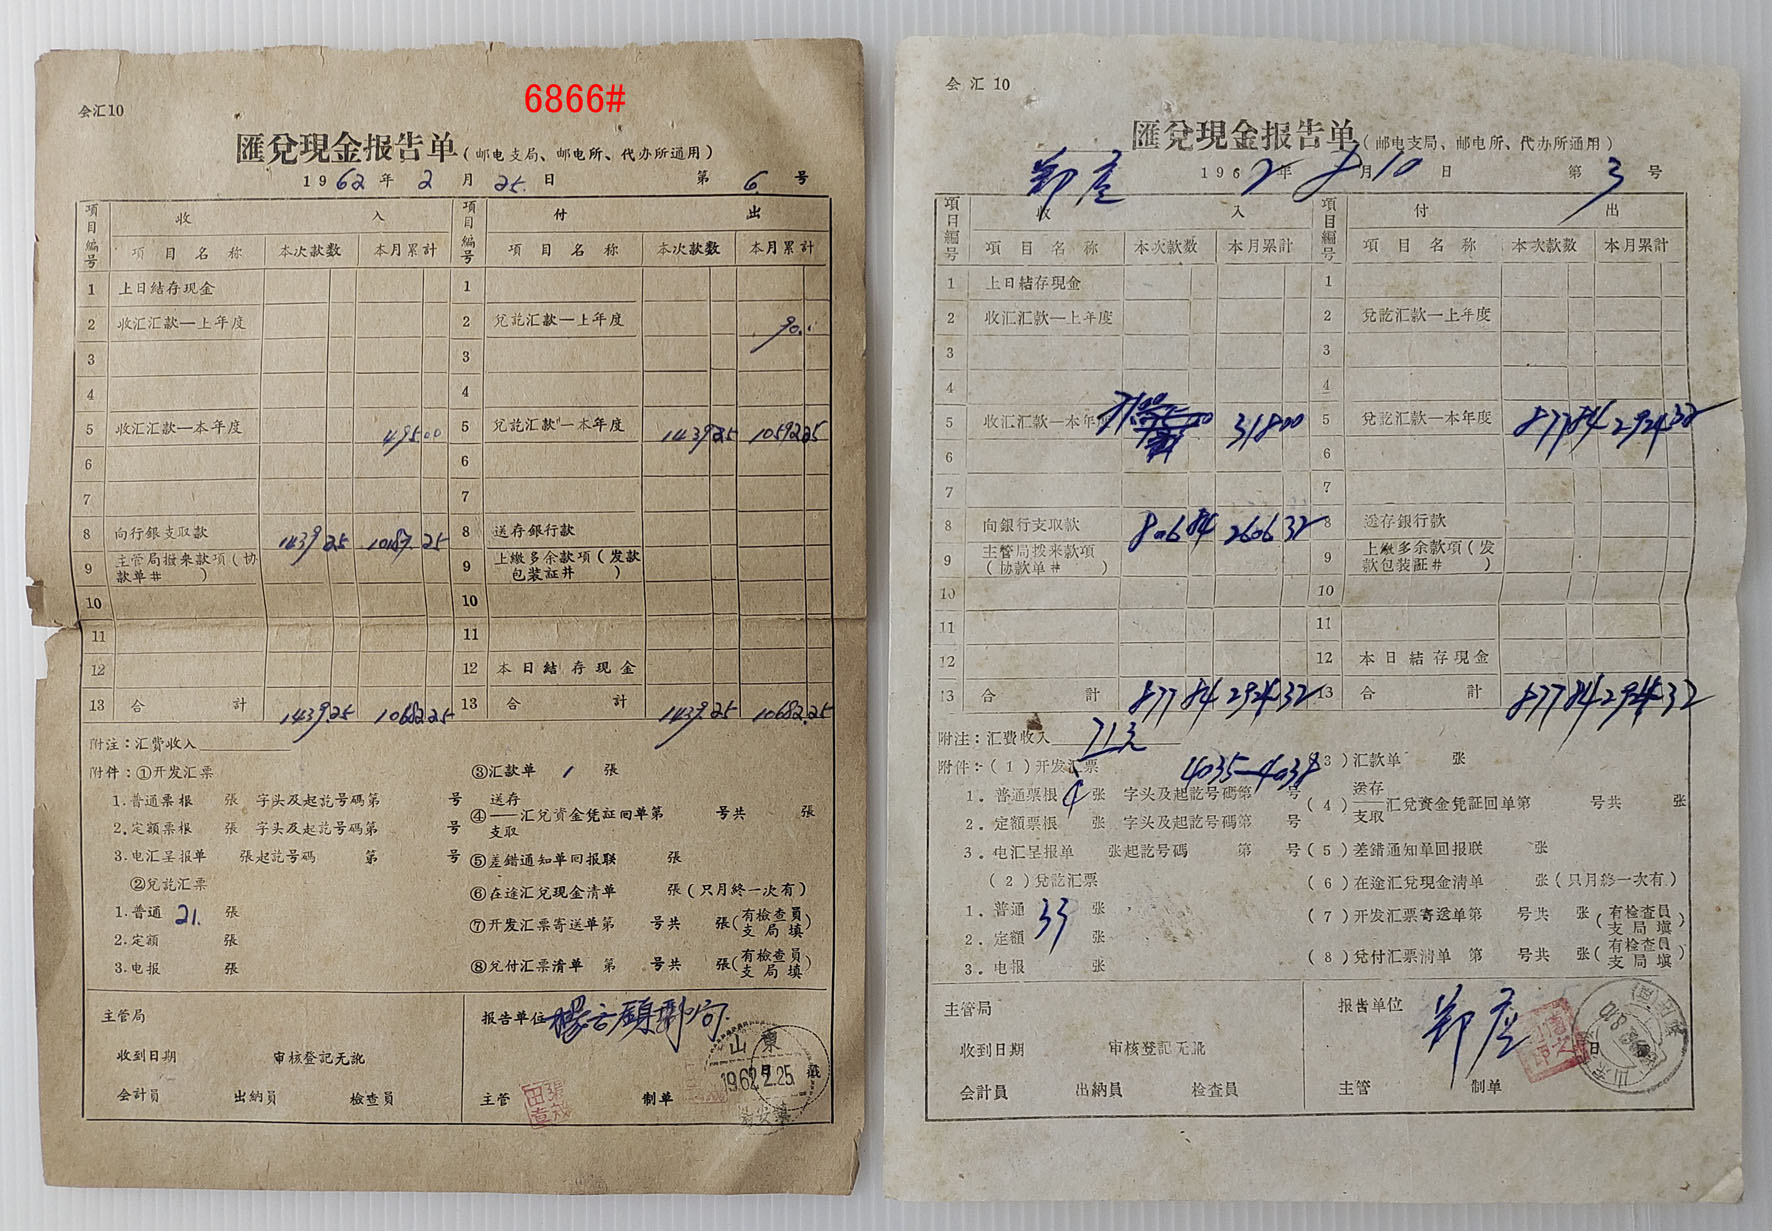 6866#
会汇10
匯兌現金报告单(邮电支局、邮电所、代办所通用)
1962年2月25日 第6号
項目編号 收入 項目編号 付出
項目名称 本次款数 本月累計 項目名称 本次款数 本月累計
1 上日結存现金 1
2 收汇汇款—上年度 2 兌訖汇款—上年度 90.
3 3
4 4
5 收汇汇款—本年度 495.00 5 兌訖汇款—本年度 1439.25 10592.25
6 6
7 7
8 向行銀支取款 1439.25 10187.25 8 送存銀行款
9 主管局撥来款項(协款单#) 9 上繳多余款項(发款包装証#)
10 10
11 11
12 12 本日結存現金
13 合計 1439.25 10682.25 13 合計 1439.25 10682.25
附注:汇費收入
附件:①开发汇票 ③汇款单 1 張
1.普通票根 張 字头及起訖号碼第 号
2.定額票根 張 字头及起訖号碼第 号
3.电汇呈报单 張起訖号碼 第 号
送存
④——汇兌資金凭証回单第 号共 張
支取
⑤差錯通知单回报联 張
②兌訖汇票 ⑥在途汇兌現金清单 張(只月終一次有)
1.普通 21. 張 ⑦开发汇票寄送单第 号共 張(有檢查員支局填)
2.定額 張
3.电报 張 ⑧兌付汇票清单 第 号共 張(有檢查員支局填)
主管局 报告单位
收到日期 审核登記无訛
会計員 出納員 檢查員 主管 制单
山東
1962.2.25.
会汇10
匯兌現金报告单(邮电支局、邮电所、代办所通用)
1962年8月10日 第3号
項目編号 收入 項目編号 付出
項目名称 本次款数 本月累計 項目名称 本次款数 本月累計
1 上日結存現金 1
2 收汇汇款—上年度 2 兌訖汇款—上年度
3 3
4 4
5 收汇汇款—本年度 7100 31800 5 兌訖汇款—本年度 87784 292432
6 6
7 7
8 向銀行支取款 80684 260632 8 送存銀行款
9 主管局拨来款項(协款单#) 9 上繳多余款項(发款包装証#)
10 10
11 11
12 12 本日結存現金
13 合計 87784 292432 13 合計 87784 292432
附注:汇費收入 71元
附件:(1)开发汇票 4035—4038 (3)汇款单 张
1.普通票根 4 张 字头及起訖号碼第 号
2.定額票根 张 字头及起訖号碼第 号
3.电汇呈报单 张起訖号碼 第 号
送存
(4)——汇兌資金凭証回单第 号共 张
支取
(5)差錯通知单回报联 张
(2)兌訖汇票 (6)在途汇兌現金清单 张(只月終一次有)
1.普通 33 张 (7)开发汇票寄送单第 号共 张(有检查員支局填)
2.定額 张
3.电报 张 (8)兌付汇票清单 第 号共 张(有检查員支局填)
主管局 报告单位
收到日期 审核登記无訛
会計員 出納員 檢查員 主管 制单